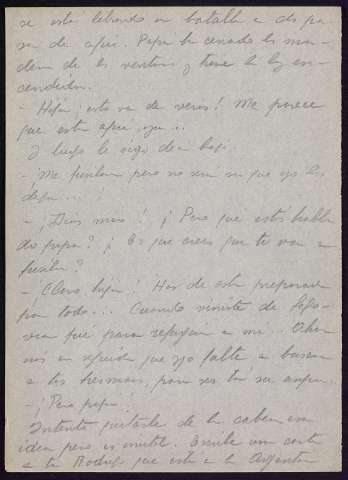 se está librando un batalla a dos pa-
sos de aquí. Papa ha cerrado las ma-
deras de las ventanas y tiene la luz en-
cendida.
- Hija, esto va de veras! Me parece
que estan aquí ya...
Y luego le oigo decir bajo.
- Me fusilaran pero no sin que yo les
deje...
- ¡Dios mio! ¡Pero qué estás hablan
do papa? ¿Es que crees que te van a
fusilar?
- Claro, hija! Has de estar preparada
para todo... Cuando viniste de
fué para refugiarte a mi. Ahora
en seguida que yo falte a buscar
a tus hermanos, para ser tú su amparo.
¡Pero papa!
Intento quitarle de la cabeza esa
idea pero es inutil. Escribe una carta
a tio Rodrigo que está en la Argentina